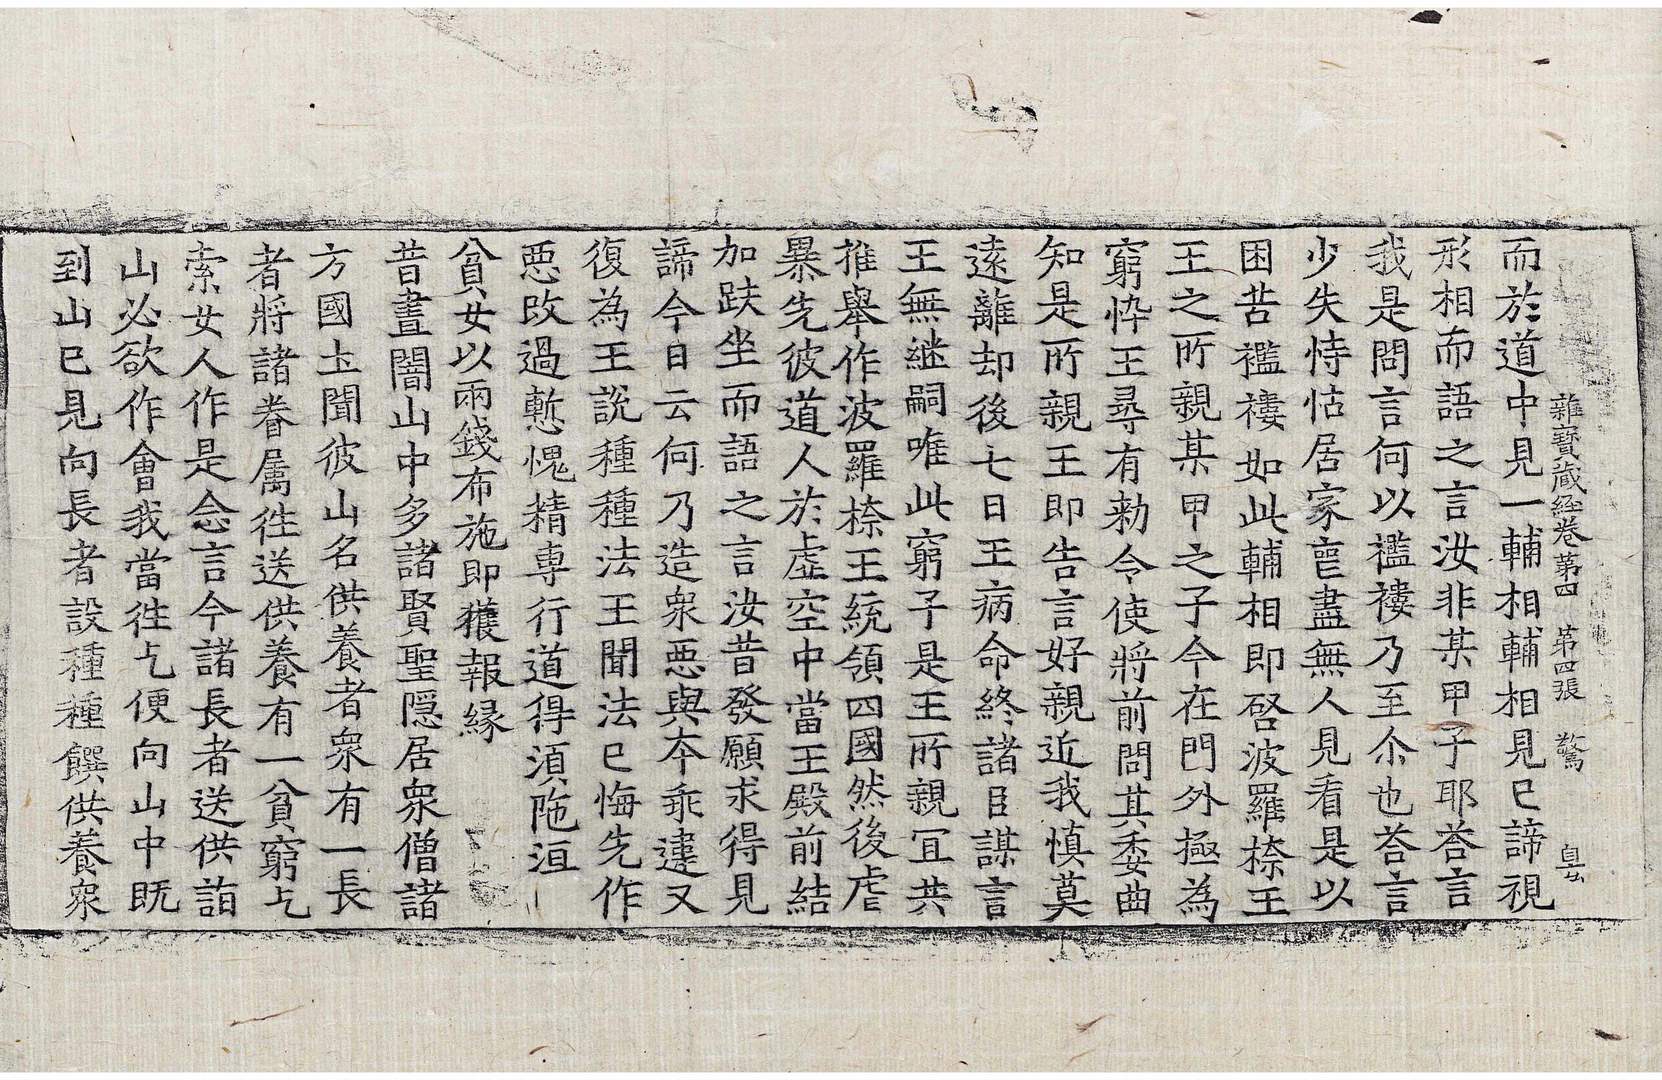 雜寶藏經卷第四 第四張 驚
而於道中見一輔相輔相見已諦視
形相而語之言汝非某甲子耶荅言
我是問言何以襤褸乃至尒也荅言
少失恃怙居家窮盡無人見看是以
困苦襤褸如此輔相即啓波羅㮈王
王之所親某甲之子今在門外極為
窮悴王尋有勑令使將前問其委曲
知是所親王即告言好親近我慎莫
遠離却後七日王病命終諸臣謀言
王無継嗣唯此窮子是王所親冝共
推舉作波羅㮈王統領四國然後虐
暴先彼道人於虛空中當王殿前結
加趺坐而語之言汝昔發願求得見
諦今日云何乃造衆惡與夲乖違又
復為王說種種法王聞法已悔先作
惡改過慙愧精專行道得湏陁洹
貧女以兩錢布施即獲報緣
昔晝闇山中多諸賢聖隠居衆僧諸
方國圡聞彼山名供養者衆有一長
者將諸眷属徃送供養有一貧窮乞
索女人作是念言今諸長者送供詣
山必欲作會我當徃乞便向山中旣
到山已見向長者設種種饌供養衆